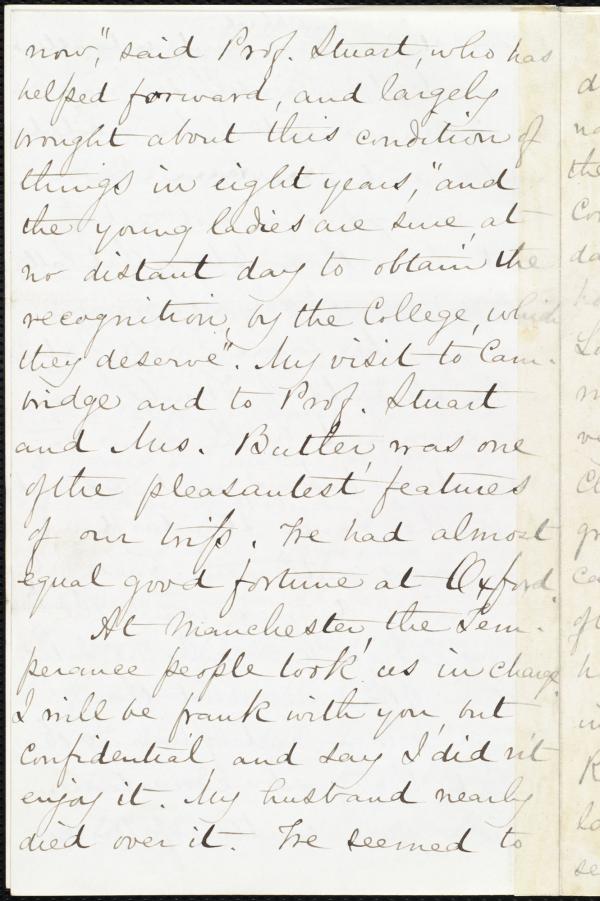 now", said Prof. Stuart, who has
helped forward, and largely
brought about this condition of
things in eight years, "and
the young ladies are sure, at
no distant day to obtain the
recognition, by the College, which
they deserve". My visit to Cam-
bridge and to Prof. Stuart
and Mrs. Butler, was one
of the pleasantest features
of our trip. We had almost
equal good fortune at Oxford.
At Manchester, the Tem-
perance people took us in charge.
I will be frank with you, but
confidential and say I did n't
enjoy it. My husband nearly
died over it. We seemed to